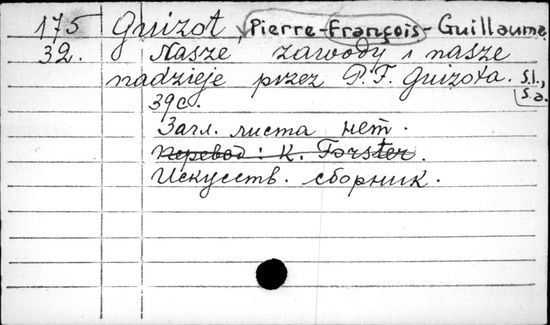 175 Guizot, Pierre-François-Guillaume
32. Nasze zawody i nasze
nadzieje przez P. F. Guizota. s.l.,
s.a.
39c.
Загл. листа нет.
Перевод: K. Forster.
Искусств. сборник.